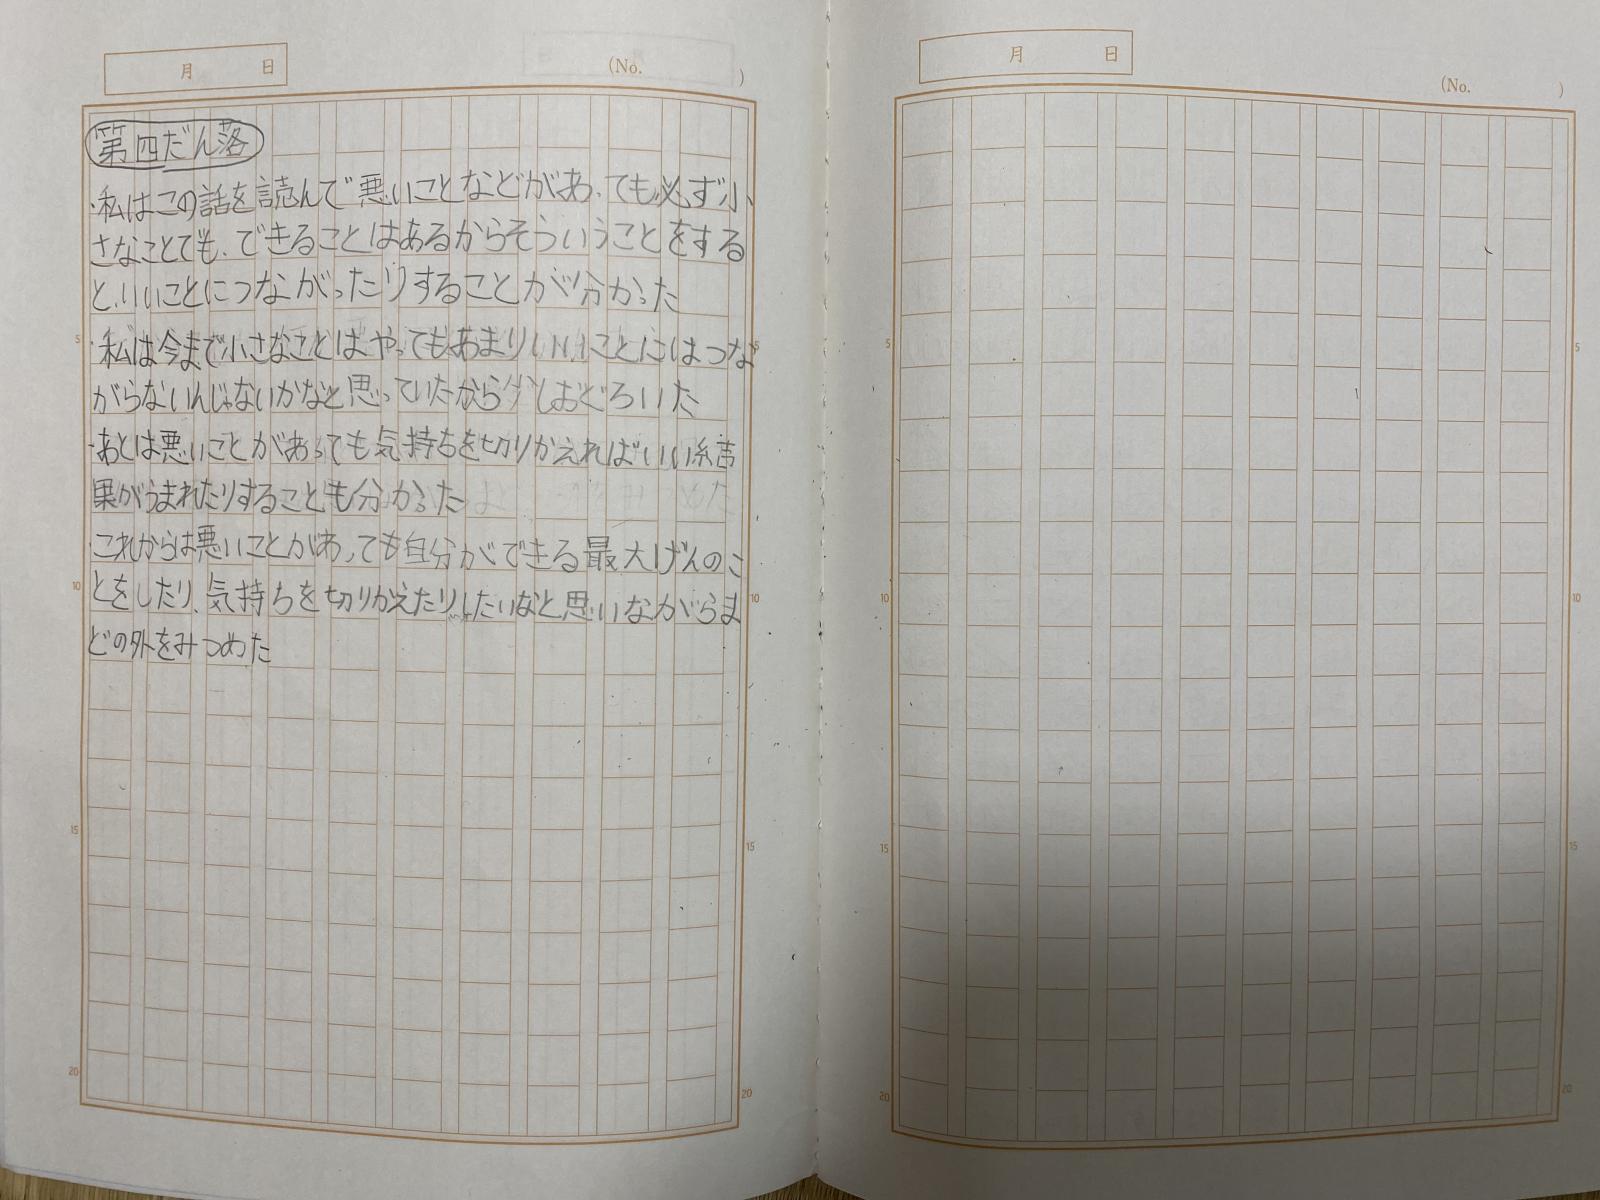 月 日
(No. )
第四だん落
・私はこの話を読んで悪いことなどがあっても必ず小
さなことでも、できることはあるからそういうことをする
と、いいことにつながったりすることが分かった
・私は今まで小さなことはやってもあまりいいことにはつな
がらないんじゃないかなと思っていたから少しおどろいた
・あとは悪いことがあっても気持ちを切りかえればいい結
果がうまれたりすることも分かった
・これからは悪いことがあっても自分ができる最大げんのこ
とをしたり、気持ちを切りかえたりしたいなと思いながらま
どの外をみつめた
5
10
15
20
5
10
15
20
月 日
(No. )
5
10
15
20
5
10
15
20